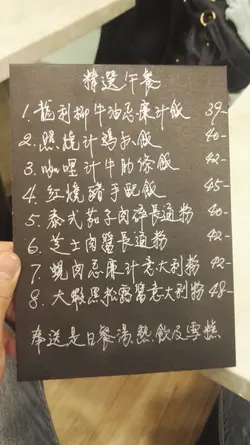 精選午餐
1. 龍利柳牛油忌廉汁飯 39-
2. 照燒汁鷄扒飯 40-
3. 咖哩汁牛肋條飯 42-
4. 紅燒豬手配飯 45-
5 泰式茄子肉碎長通粉 40-
6 芝士肉醬長通粉 42-
7 蜆肉忌廉汁意大利粉 42-
8. 大蝦黑松露醬意大利粉 48-
奉送是日餐湯,熱飲及雪糕